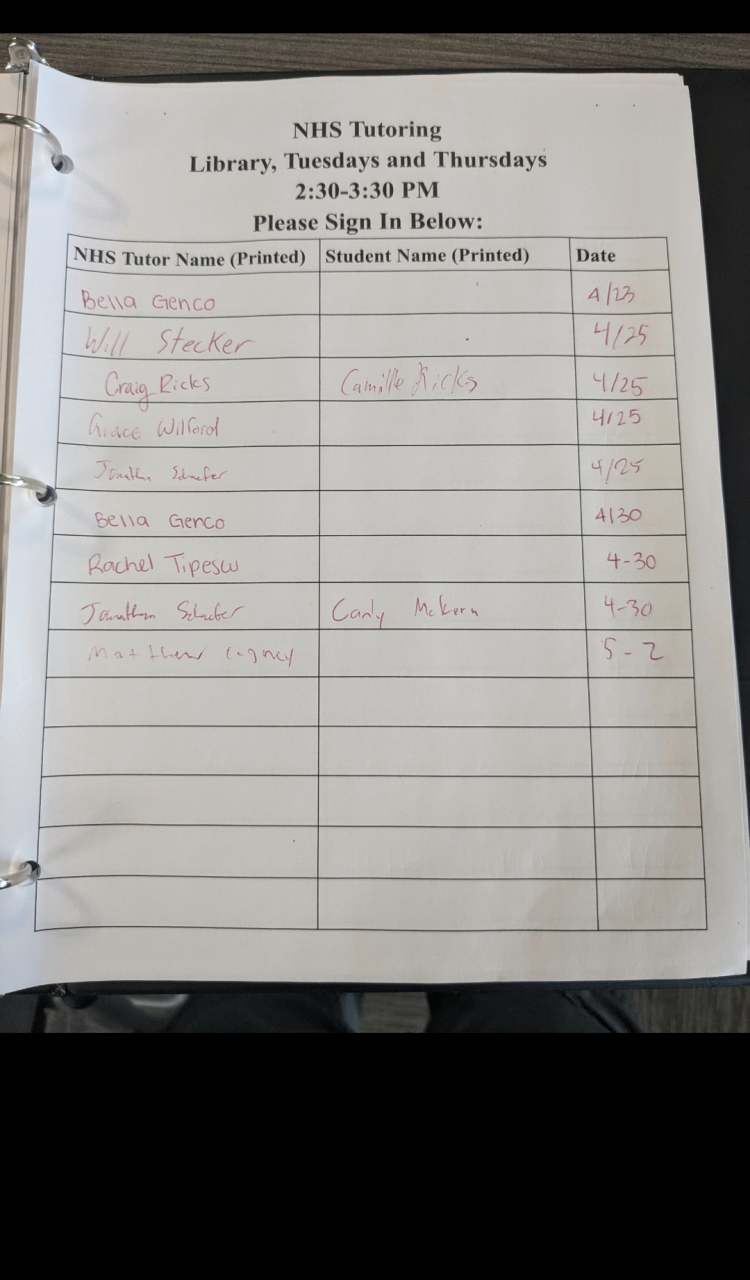 NHS Tutoring
Library, Tuesdays and Thursdays
2:30-3:30 PM
Please Sign In Below:
NHS Tutor Name (Printed) Student Name (Printed) Date
Bella Genco 4/23
Will Stecker 4/25
Craig Ricks Camille Ricks 4/25
Grace Wilford 4/25
Jonathan Schaefer 4/25
Bella Genco 4/30
Rachel 4-30
Jonathan Schaefer Carly McKern 4-30
Matthew 5-2